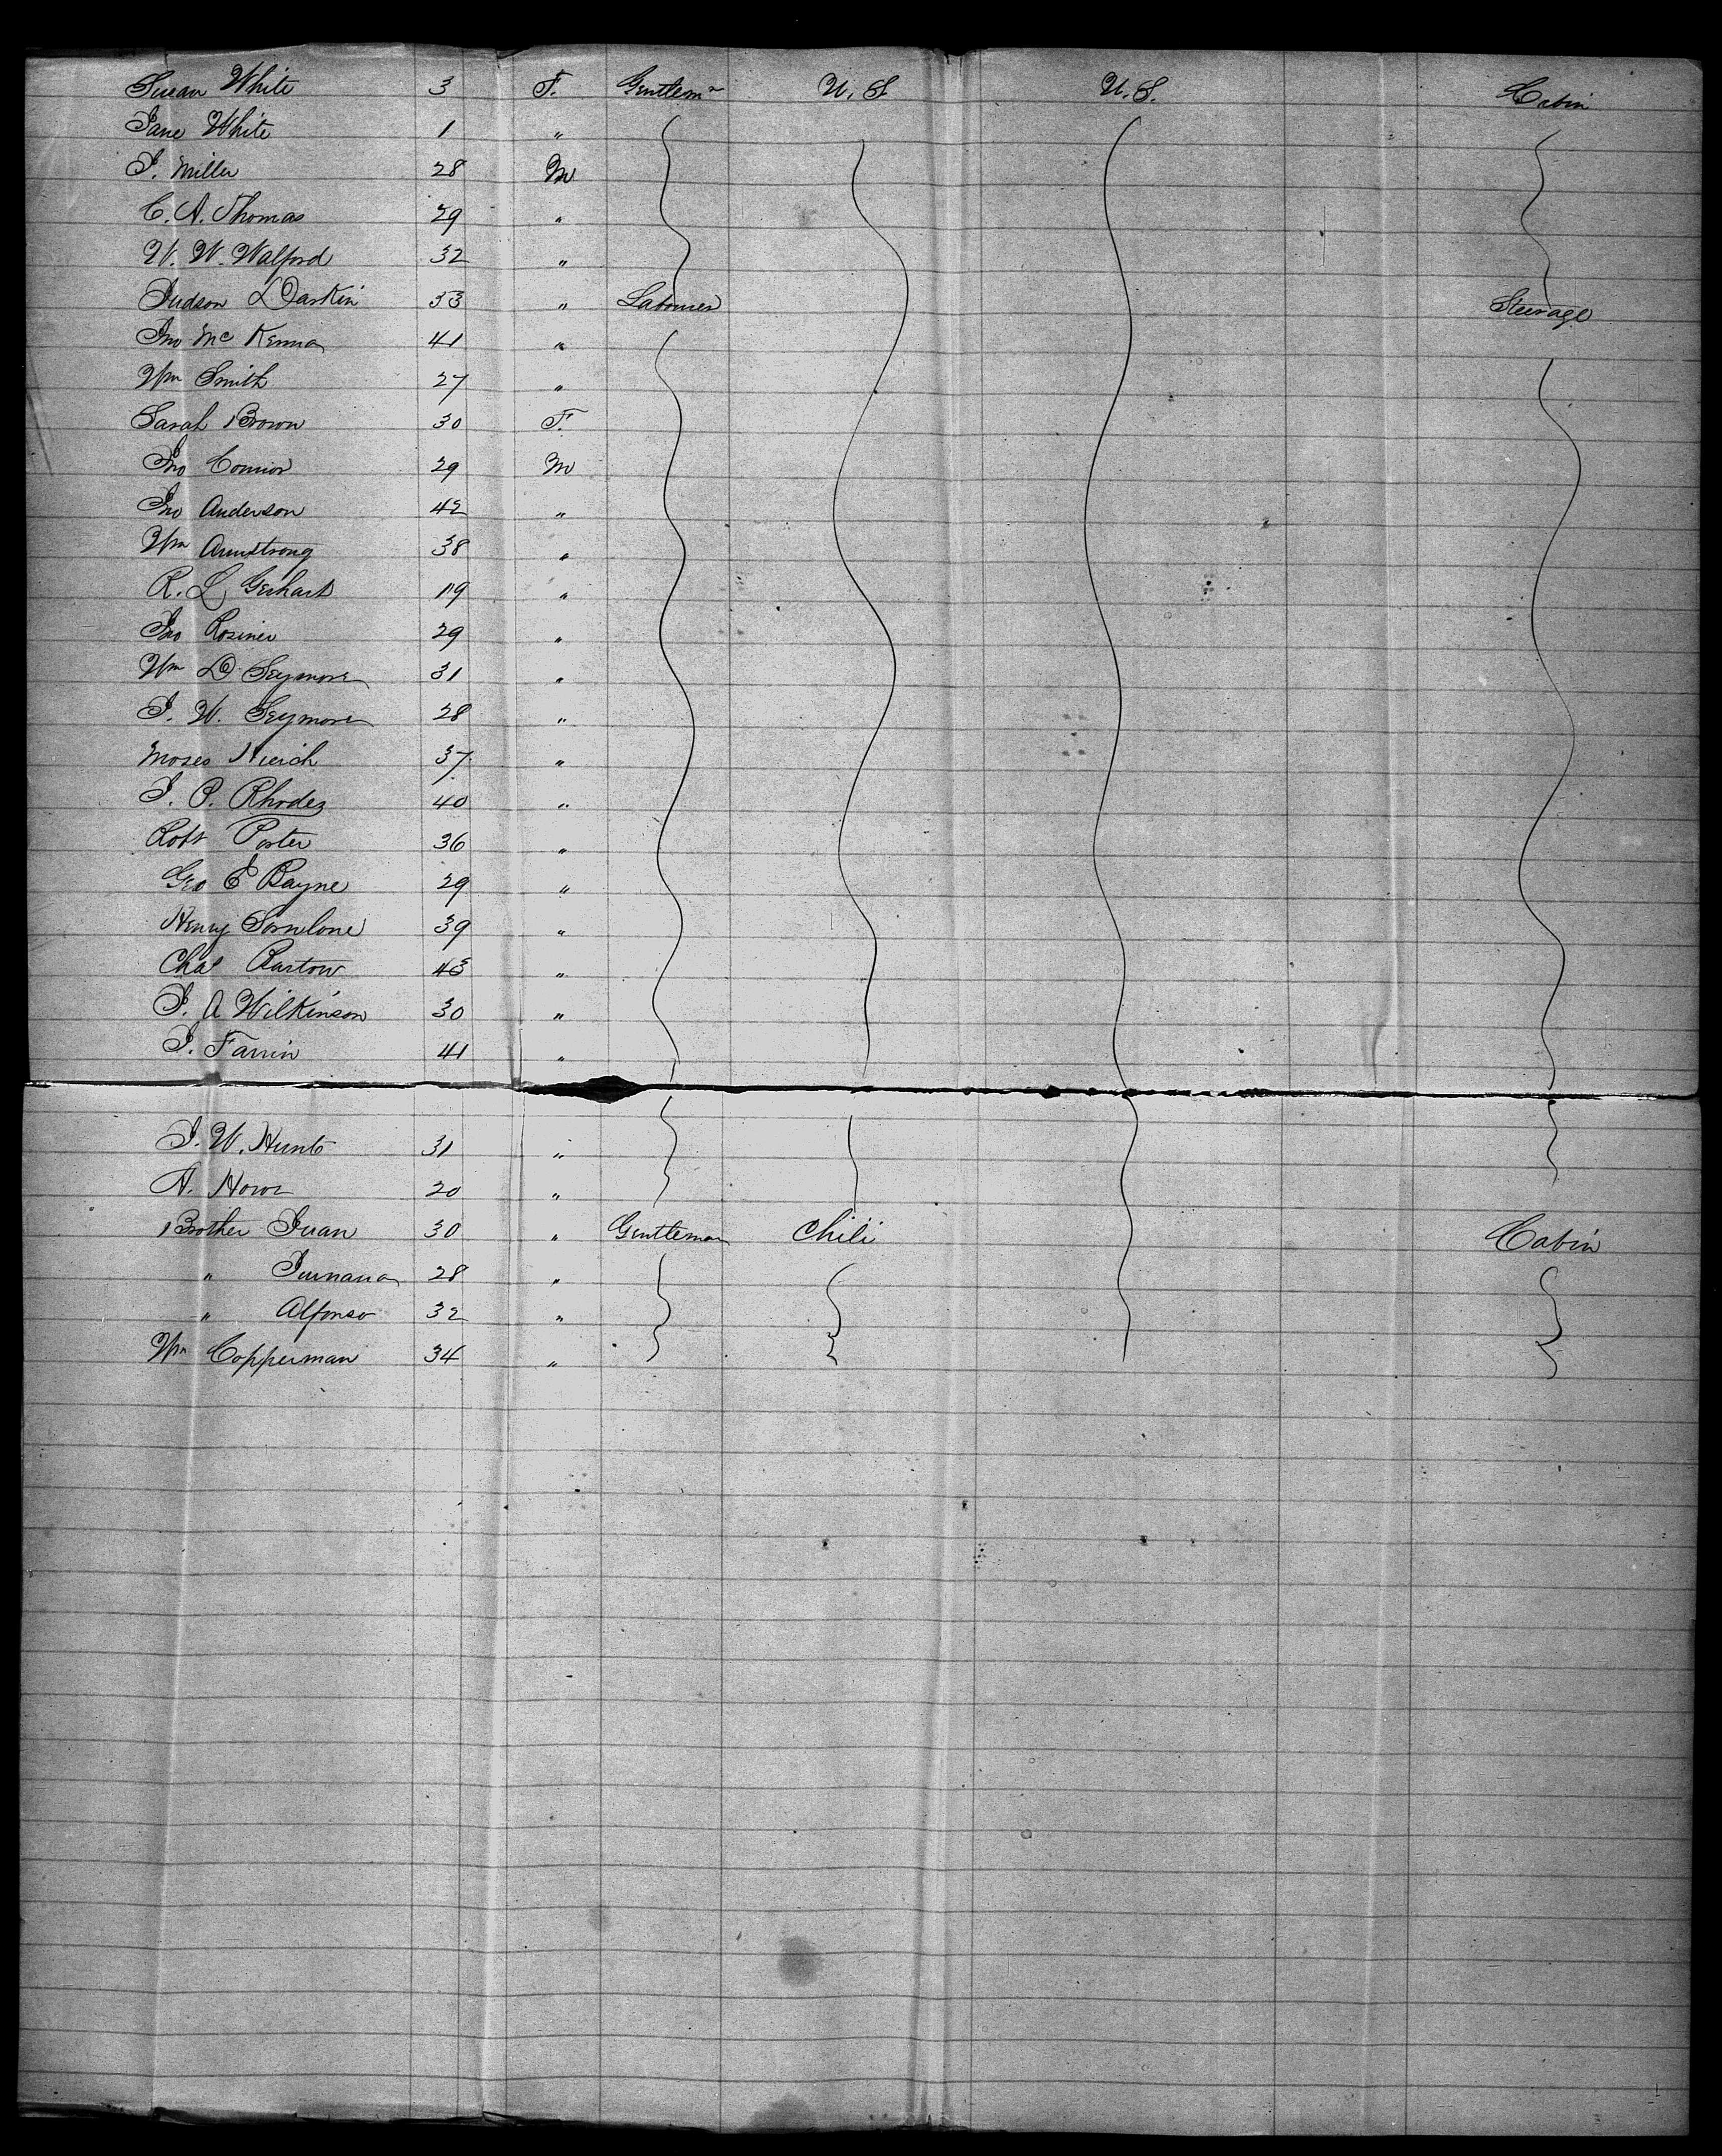 Susan White 3 F. Gentlemn U. S. U. S. Cabin
Jane White 1 "
J. Miller 28 M
C. A. Thomas 29 "
W. W. Walford 32 "
Judson Daskin 33 " Labourer Steerage
Jno McKenna 41 "
Wm Smith 27 "
Sarah Brown 30 F.
Jno Connor 29 M
Jno Anderson 42 "
Wm Armstrong 38 "
R. L. Gerhart 19 "
Jno Rosiner 29 "
Wm D. Seymore 31 "
J. W. Seymore 28 "
Moses 37 "
J. P. Rhodes 40 "
Robt Porter 36 "
Geo E Bayne 29 "
Henry 39 "
Chas Barstow 43 "
J. A Wilkinson 30 "
J. Farrin 41 "
J. W. Hunt 31 "
A. Howe 20 "
Brother Juan 30 " Gentleman Chili Cabin
" 28 "
" Alfonso 32 "
Wm Copperman 34 "